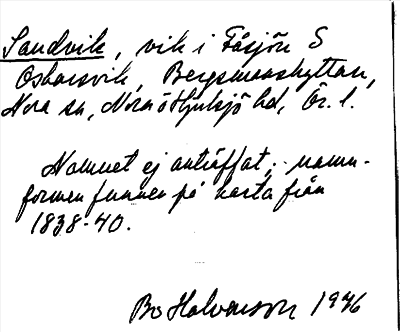 Sandvik, vik i Fåsjön S
Oskarsvik, Bergsmanshyttan,
Nora sn, Nora o Hjulsjö hd, Ör. l.
Namnet ej anträffat; namn-
formen funnen på karta från
1838-40.
Bo Halvarson 1946